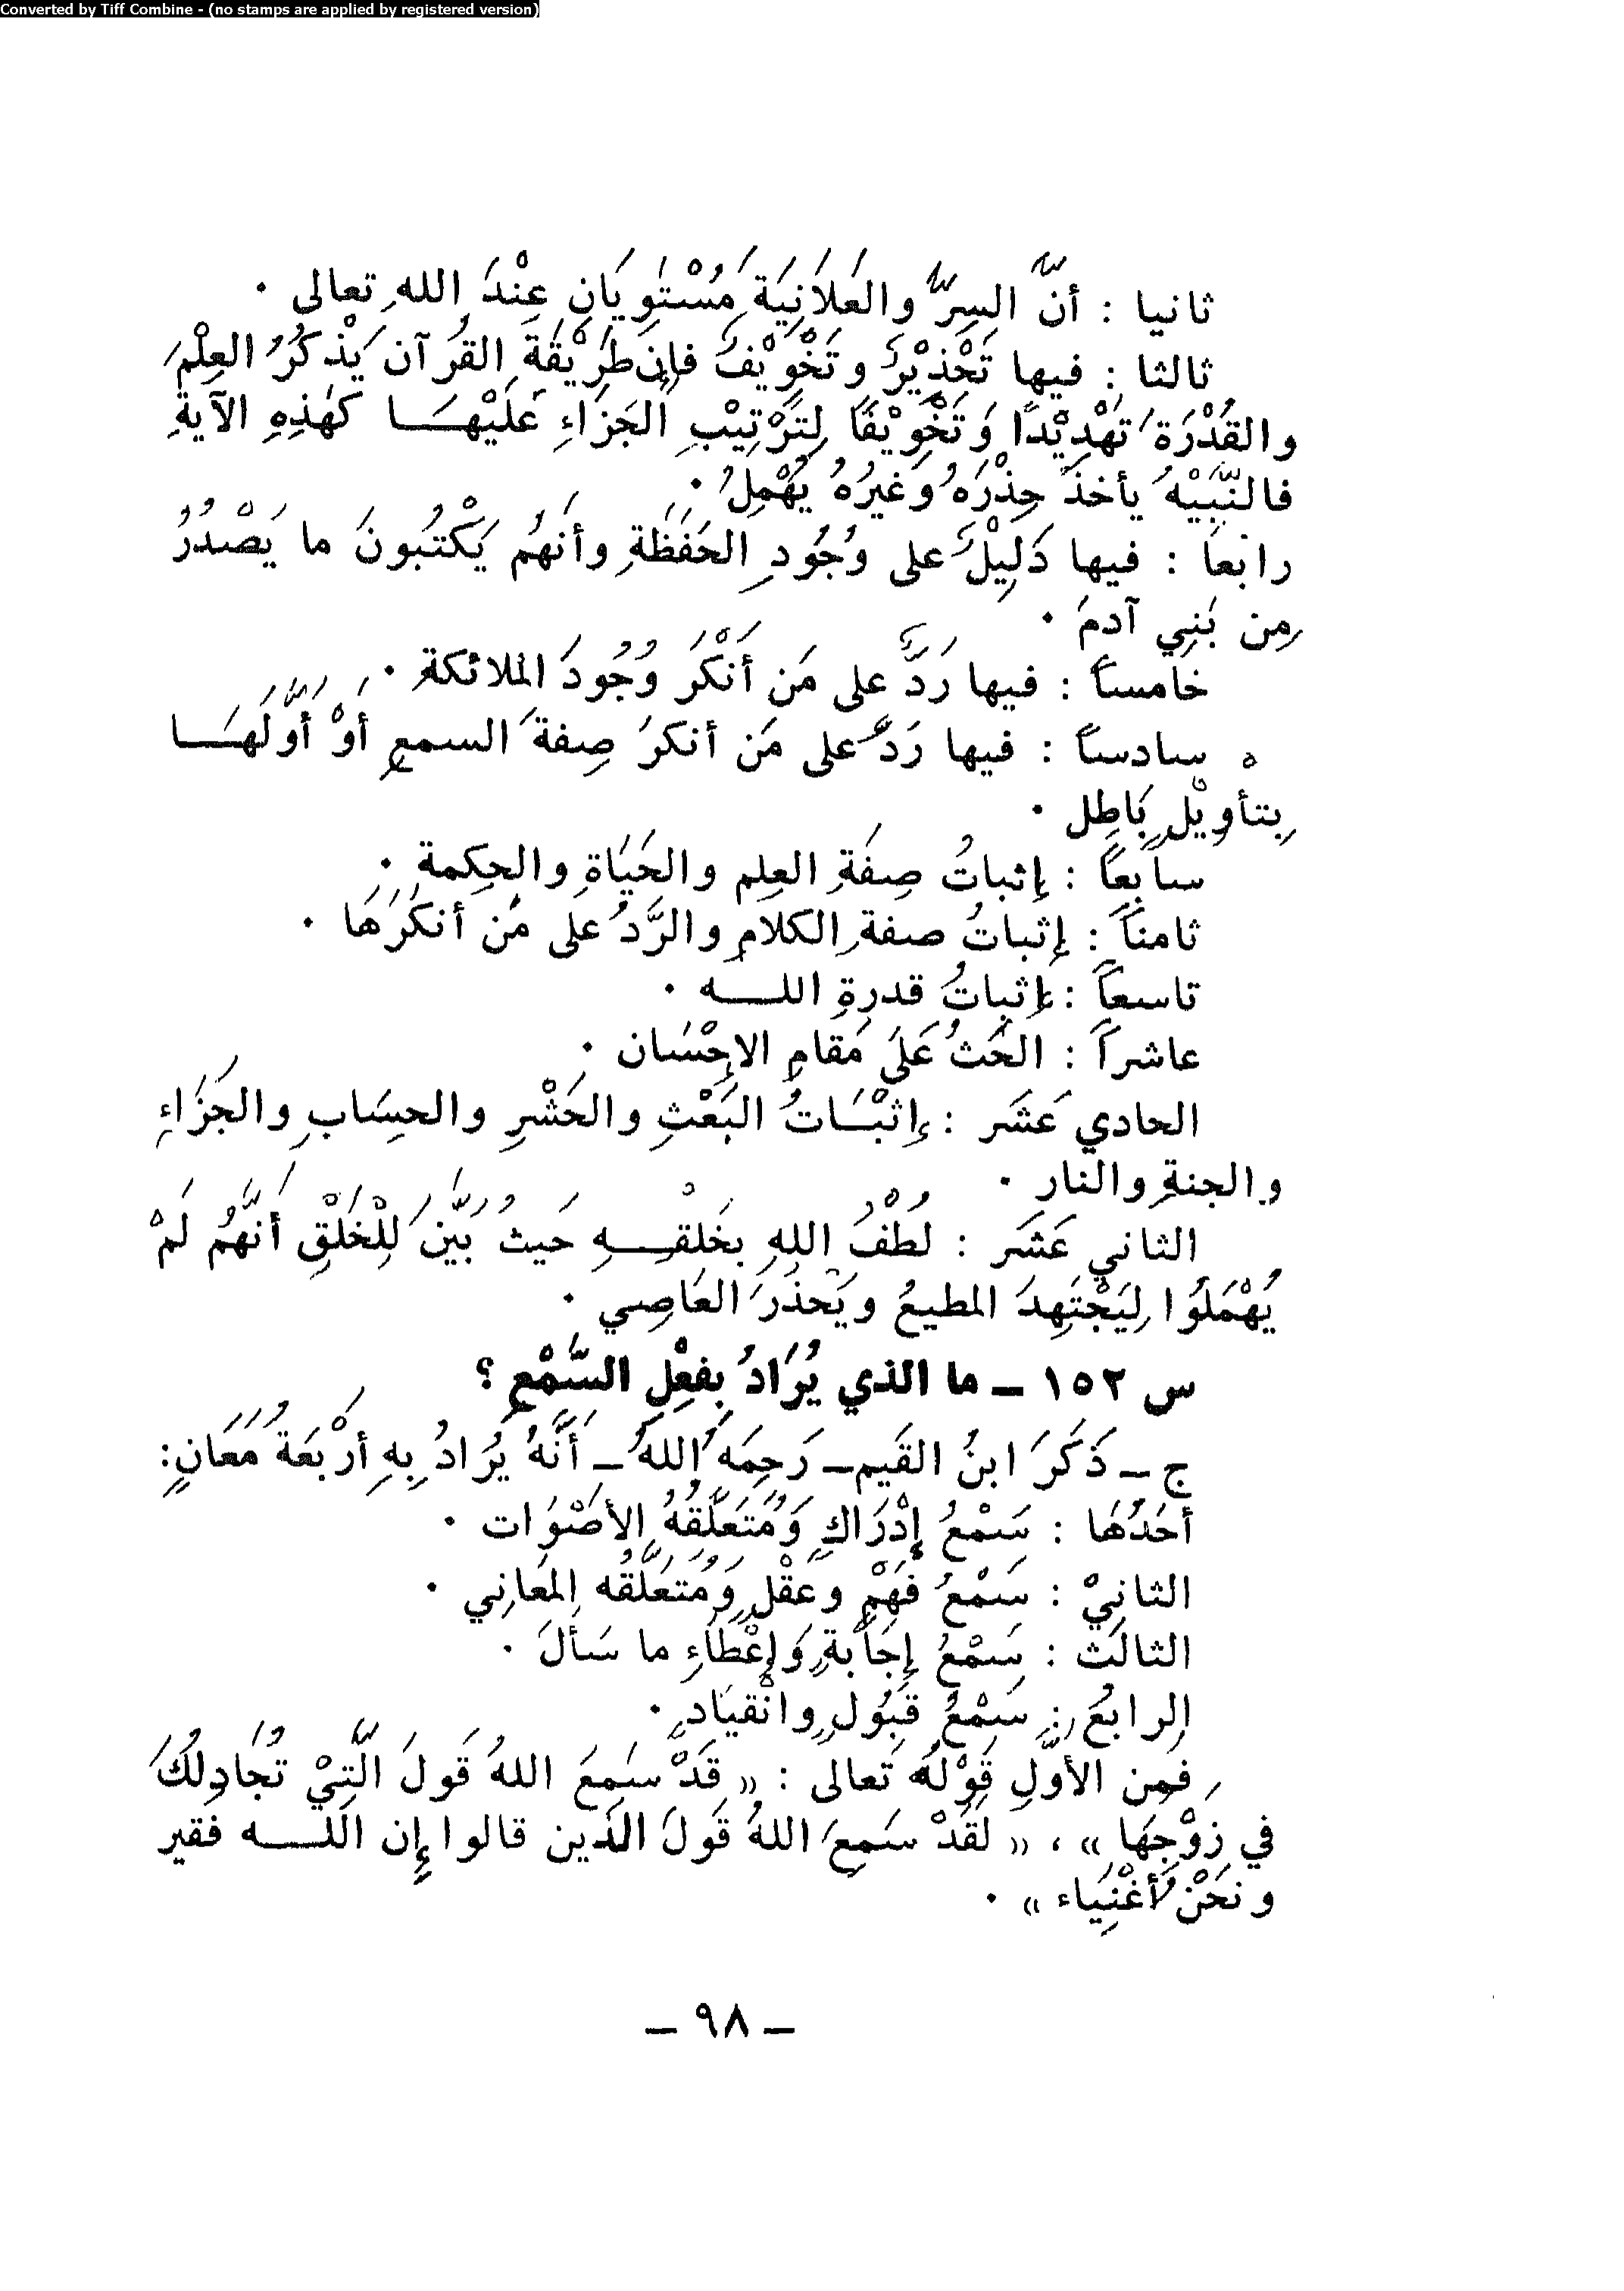 Converted by Tiff Combine - (no stamps are applied by registered version)
ثانيا : أنَّ السِرَّ والعَلاَنِيَةَ مُسْتَوِيَانِ عِنْدَ اللهِ تعالى .
ثالثا : فيها تَحْذِيْرٌ وتَخْوِيْفٌ فإن طَرِيْقَةَ القُرآن يَذْكُرُ العِلْمَ
والقُدْرَةَ تَهْدِيْدًا وَتَخْوِيْفًا لِتَرْتِيْبِ الجَزَاءِ عَلَيْهَـــا كَهٰذِهِ الآيةِ
فالنَّبِيْهُ يأخذُ حِذْرَهُ وَغيرُهُ يُهْمِلُ .
رابعاً : فيها دَلِيْلٌ على وُجُودِ الحَفَظَةِ وأنهُم يَكْتُبونَ ما يَصْدُرُ
مِن بَنِي آدمَ .
خامساً : فيها رَدٌّ على مَن أَنْكَرَ وُجُودَ الملائكةِ .
سادساً : فيها رَدٌّ على مَن أنكرَ صِفةَ السمعِ أوْ أَوَّلَهَـــا
بِتأوِيْلٍ بَاطِل .
سابعاً : إثباتُ صِفَةِ العِلم والحَيَاةِ والحِكمة .
ثامناً : إثباتُ صفةِ الكلامِ والرَّدُ على مَن أنكرَهَا .
تاسعاً : إثباتُ قدرةِ اللـــه .
عاشراً : الحَثُ عَلَى مَقامِ الإحْسَان .
الحادي عَشَر : إثْبَـاتُ البَعْثِ والحَشْرِ والحِسَابِ والجَزَاءِ
والجنةِ والنارِ .
الثاني عَشَر : لُطْفُ اللهِ بخَلقِـــهِ حَيثُ بَيَّنَ لِلْخَلْقِ أنَّهُم لَمْ
يُهْمَلُوا لِيَجْتَهِدَ المطيعُ ويَحْذَرَ العَاصِي .
س ١٥٢ ــ ما الذي يُرَادُ بِفِعْلِ السَّمْعِ ؟
ج ــ ذَكَرَ ابنُ القَيم ــ رَحِمَهُ اللهُ ــ أَنَّهُ يُرَادُ بِهِ أرْبَعَةُ مَعَانٍ:
أحَدُهَا : سَمْعُ إِدْرَاكٍ وَمُتَعَلَّقُهُ الأصْوَات .
الثانِيْ : سَمْعُ فَهْمٍ وعَقْلٍ وَمُتَعَلَّقُه المَعَانِي .
الثالثُ : سَمْعُ إِجَابةٍ وَإِعْطَاءِ ما سَأَلَ .
الرابعُ : سَمْعُ قَبُولٍ وانْقيَادٍ .
فَمِن الأوَّلِ قَوْلُهُ تَعالى : « قَدْ سَمِعَ اللهُ قَولَ الَّتِيْ تُجَادِلُكَ
في زَوْجِهَا » ، « لَقَدْ سَمِعَ اللهُ قَولَ الذين قالوا إن اللـــه فقير
ونَحْنُ أغْنِيَاء » .
ــ ٩٨ ــ